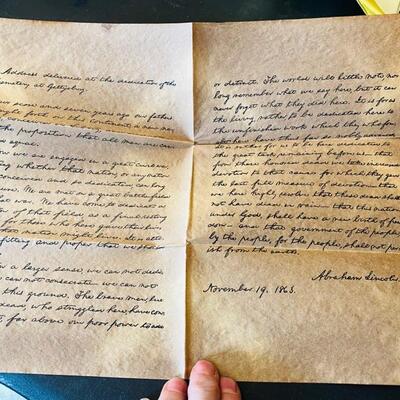 Address delivered at the dedication of the
metery at Gettysburg.
our score and seven years ago our fathers
forth on this continent, a new na
the proposition that all men are
equal.
we are engaged in a great civil
whether that nation, or any nation
conceived and so dedicated, can long
We are met on a great battle field
war. We have come to dedicate
of that field, as a final resting
for those who here gave their lives
that nation might live. It is alto
fitting and proper that we should
in a larger sense, we can not dedi
can not consecrate we can not
this ground. The brave men, liv
dead, who struggled here, have con
t, far above our poor power to add
or detract. The world will little note, nor
long remember what we say here, but it can
never forget what they did here. It is for us
the living, rather, to be dedicated here to
the unfinished work which they who
here have thus far so nobly advanced.
It is rather for us to be here dedicated to
the great task remaining before us that
from these honored dead we take increased
devotion to that cause for which they gave
the last full measure of devotion that
we here highly resolve that these dead shall
not have died in vain that this nation,
under God, shall have a new birth of free
dom and that government of the people,
by the people, for the people, shall not per
ish from the earth.
Abraham Lincoln.
November 19, 1863.